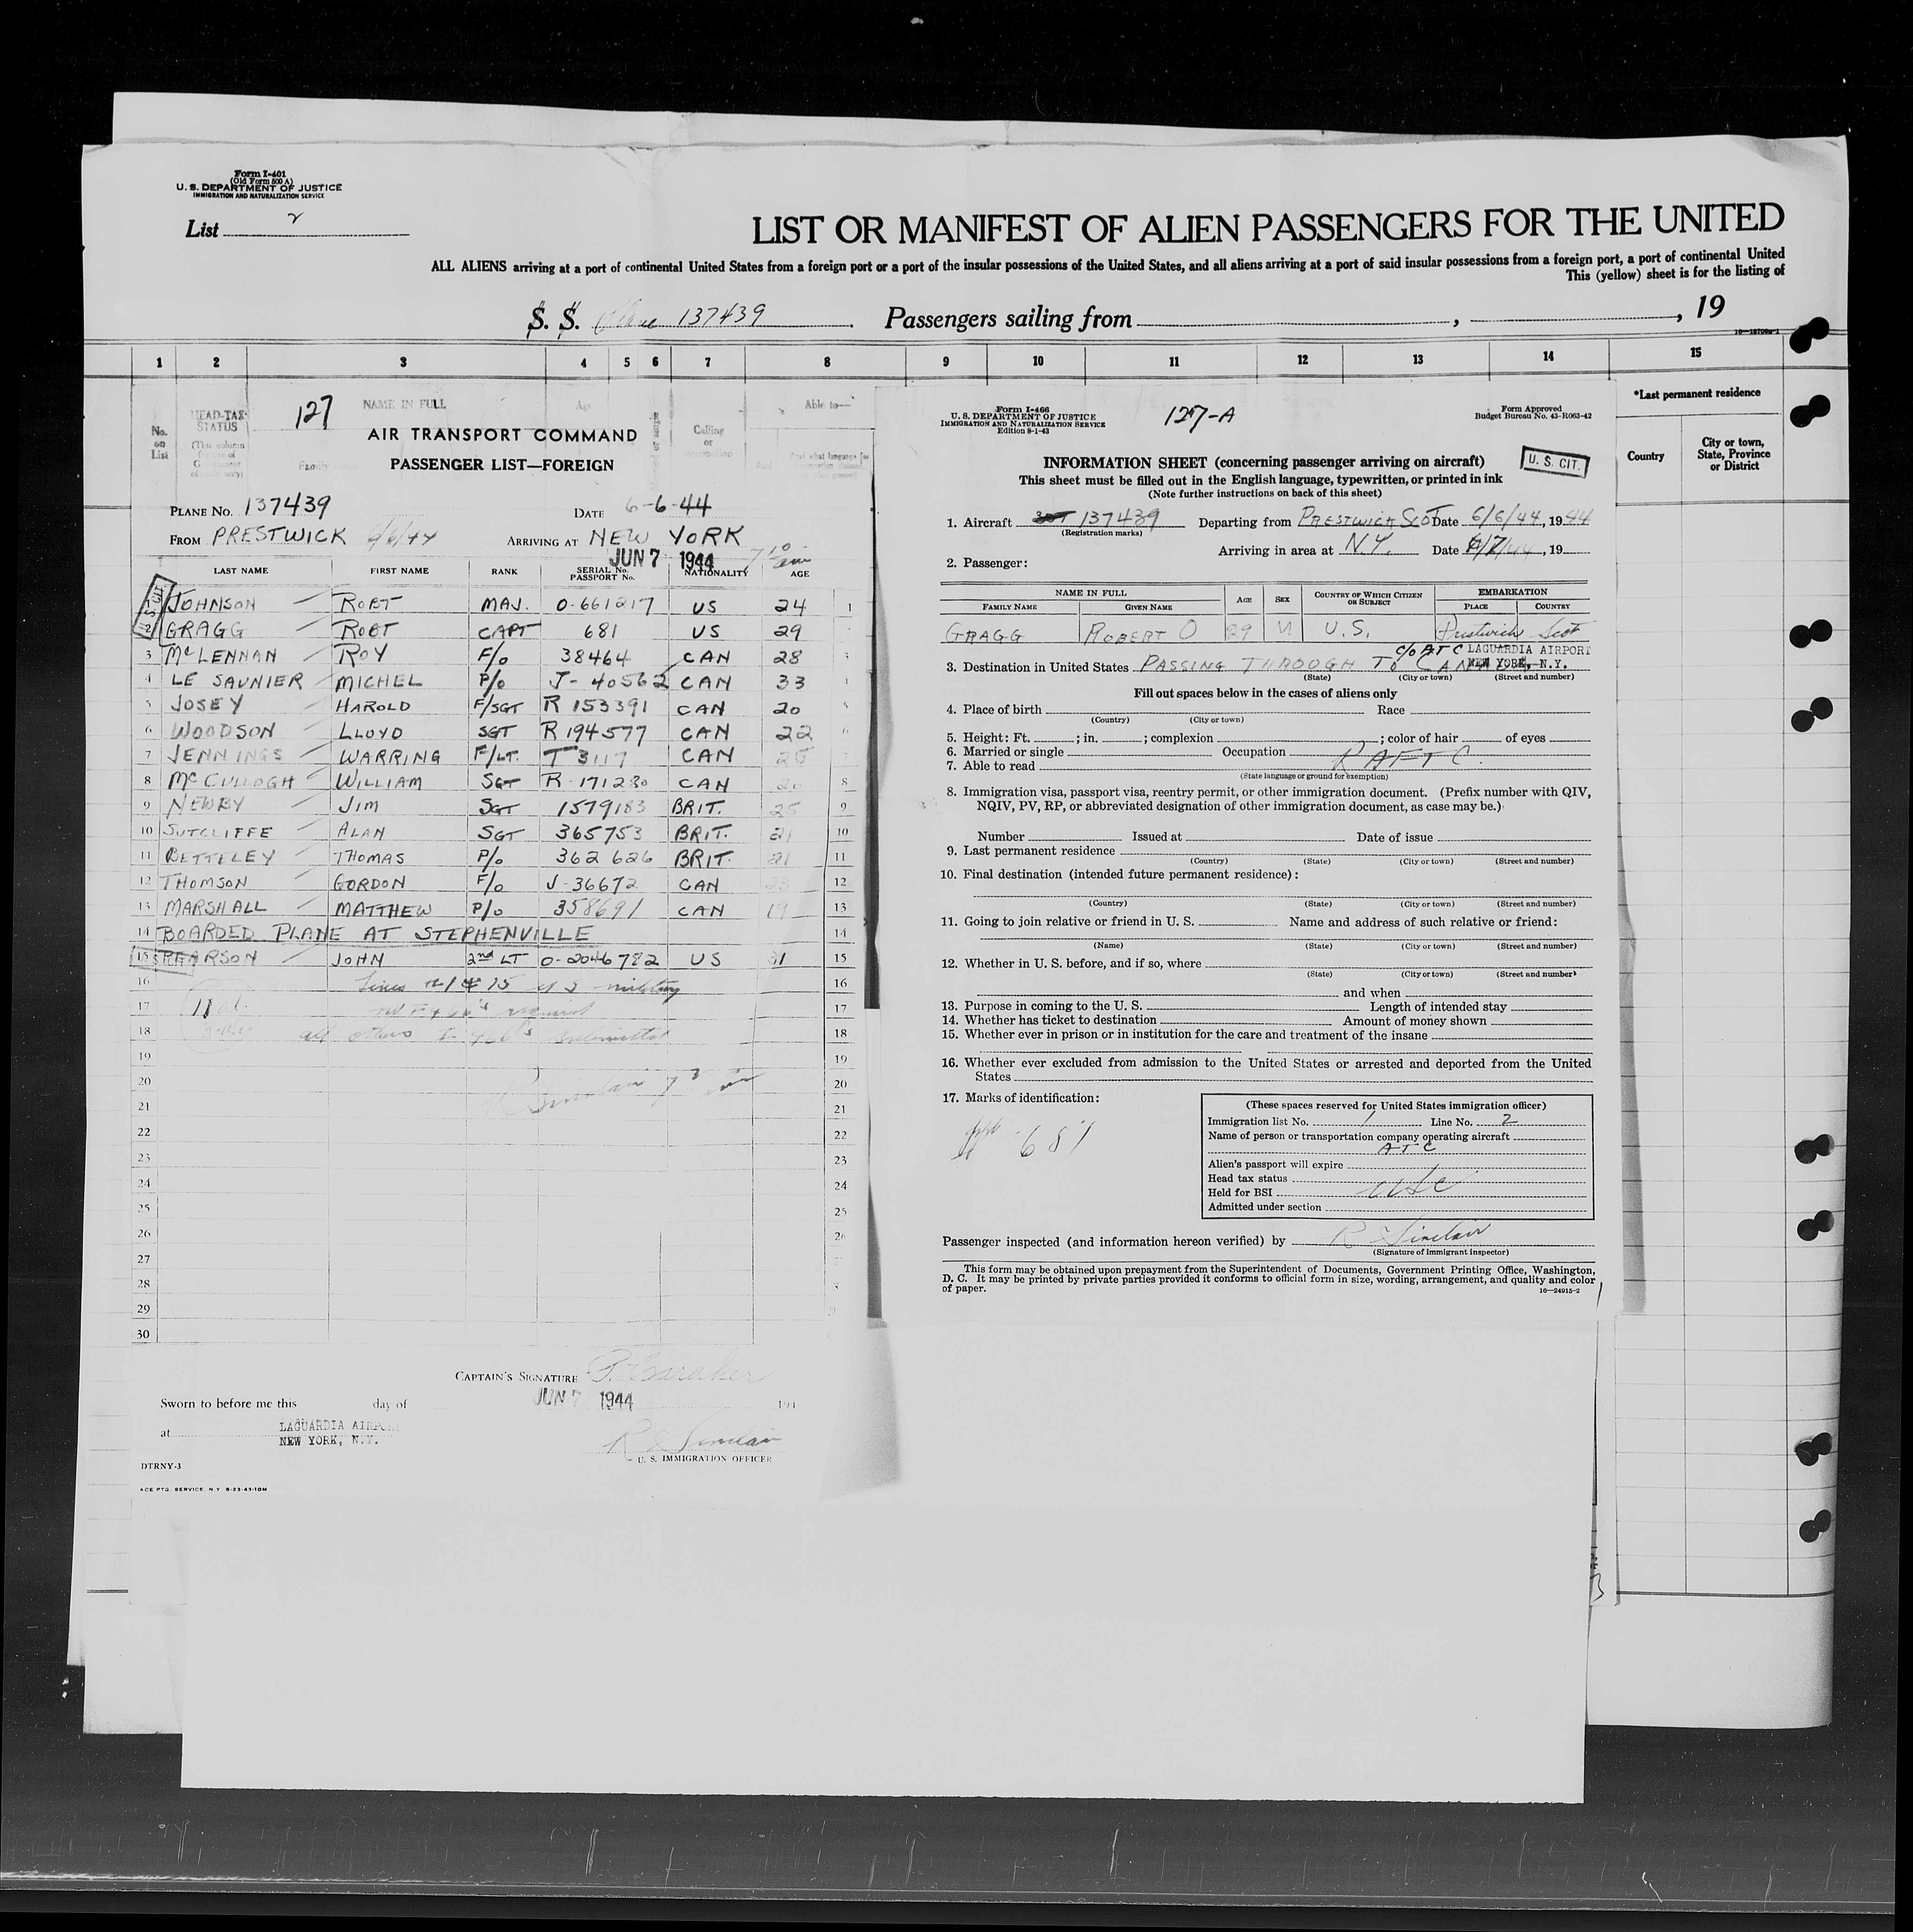 Form I-401
(Old Form 500 A)
U. S. DEPARTMENT OF JUSTICE
IMMIGRATION AND NATURALIZATION SERVICE
List 2
LIST OR MANIFEST OF ALIEN PASSENGERS FOR THE UNITED
ALL ALIENS arriving at a port of continental United States from a foreign port or a port of the insular possessions of the United States, and all aliens arriving at a port of said insular possessions from a foreign port, a port of continental United
This (yellow) sheet is for the listing of
S. S. Plane 137439 . Passengers sailing from , , 19
1 2 3 4 5 6 7 8 9 10 11 12 13 14 15
No. on List
HEAD-TAX STATUS
NAME IN FULL
Age
Calling or
Able to—
127
AIR TRANSPORT COMMAND
PASSENGER LIST—FOREIGN
PLANE No. 137439 DATE 6-6-44
FROM PRESTWICK 6/6/44 ARRIVING AT NEW YORK
JUN 7 1944 7 10 am
LAST NAME FIRST NAME RANK SERIAL No. PASSPORT No. NATIONALITY AGE
JOHNSON ROBT MAJ. O-661217 US 24 1
2 GRAGG ROBT CAPT 681 US 29
3 McLENNAN ROY F/O 38464 CAN 28 3
4 LE SAUNIER MICHEL P/O J-40562 CAN 33 4
5 JOSEY HAROLD F/SGT R 153391 CAN 20 5
6 WOODSON LLOYD SGT R 194577 CAN 22 6
7 JENNINGS WARRING F/LT. T 3117 CAN 25 7
8 McCULLOGH WILLIAM SGT R-171230 CAN 20 8
9 NEWBY JIM SGT 1579183 BRIT. 25 9
10 SUTCLIFFE ALAN SGT 365753 BRIT. 21 10
11 BETTELEY THOMAS P/O 362 626 BRIT. 21 11
12 THOMSON GORDON F/O J-36672 CAN 23 12
13 MARSHALL MATTHEW P/O 358691 CAN 19 13
14 BOARDED PLANE AT STEPHENVILLE 14
15 PEARSON JOHN 2nd LT O-2046782 US 31 15
16 Lines # 1 & 15 U S military 16
17 required 17
18 all others I-466's submitted 18
19 19
20 20
21 21
22 22
23 23
24 24
25 25
26 26
27
28
29
30
CAPTAIN'S SIGNATURE
Sworn to before me this day of JUN 7 1944 194
at LAGUARDIA AIRPORT
NEW YORK, N.Y.
R Sinclair
U. S. IMMIGRATION OFFICER
DTRNY-3
ACE PTG. SERVICE. N.Y. 8-23-43-10M
Form I-466
U. S. DEPARTMENT OF JUSTICE
IMMIGRATION AND NATURALIZATION SERVICE
Edition 8-1-43
127-A
Form Approved
Budget Bureau No. 43-R063-42
U. S. CIT.
INFORMATION SHEET (concerning passenger arriving on aircraft)
This sheet must be filled out in the English language, typewritten, or printed in ink
(Note further instructions on back of this sheet)
1. Aircraft 137439 Departing from PRESTWICK SCOT Date 6/6/44, 1944
(Registration marks)
Arriving in area at N.Y. Date 6/7/44, 19
2. Passenger:
NAME IN FULL AGE SEX COUNTRY OF WHICH CITIZEN OR SUBJECT EMBARKATION
FAMILY NAME GIVEN NAME PLACE COUNTRY
GRAGG ROBERT O 29 M U.S. Prestwick Scot
c/o ATC LAGUARDIA AIRPORT
NEW YORK, N.Y.
3. Destination in United States PASSING THROUGH TO CAN
(State) (City or town) (Street and number)
Fill out spaces below in the cases of aliens only
4. Place of birth Race
(Country) (City or town)
5. Height: Ft. ; in. ; complexion ; color of hair of eyes
6. Married or single Occupation R A F T C.
7. Able to read
(State language or ground for exemption)
8. Immigration visa, passport visa, reentry permit, or other immigration document. (Prefix number with QIV,
NQIV, PV, RP, or abbreviated designation of other immigration document, as case may be.)
Number Issued at Date of issue
9. Last permanent residence
(Country) (State) (City or town) (Street and number)
10. Final destination (intended future permanent residence):
(Country) (State) (City or town) (Street and number)
11. Going to join relative or friend in U. S. Name and address of such relative or friend:
(Name) (State) (City or town) (Street and number)
12. Whether in U. S. before, and if so, where
(State) (City or town) (Street and number)
and when
13. Purpose in coming to the U. S. Length of intended stay
14. Whether has ticket to destination Amount of money shown
15. Whether ever in prison or in institution for the care and treatment of the insane
16. Whether ever excluded from admission to the United States or arrested and deported from the United
States
17. Marks of identification:
681
(These spaces reserved for United States immigration officer)
Immigration list No. 1 Line No. 2
Name of person or transportation company operating aircraft
ATC
Alien's passport will expire
Head tax status
Held for BSI USC
Admitted under section
Passenger inspected (and information hereon verified) by R Sinclair
(Signature of immigrant inspector)
This form may be obtained upon prepayment from the Superintendent of Documents, Government Printing Office, Washington,
D. C. It may be printed by private parties provided it conforms to official form in size, wording, arrangement, and quality and color
of paper.
16—24915-2
*Last permanent residence
Country
City or town, State, Province or District